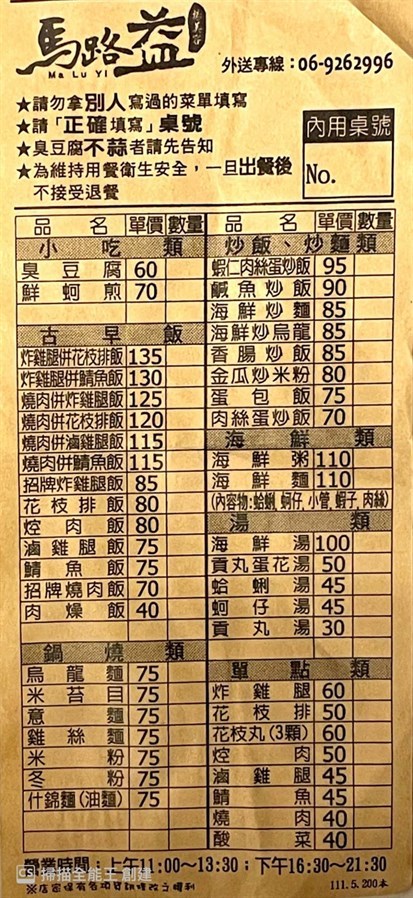 馬路益
楊美容
Ma Lu Yi
外送專線：06-9262996
★請勿拿別人寫過的菜單填寫
★請「正確填寫」桌號
★臭豆腐不蒜者請先告知
★為維持用餐衛生安全，一旦出餐後
不接受退餐
內用桌號
No.
品名 單價 數量
小吃類
臭豆腐 60
鮮蚵煎 70
古早飯
炸雞腿併花枝排飯 135
炸雞腿併鯖魚飯 130
燒肉併炸雞腿飯 125
燒肉併花枝排飯 120
燒肉併滷雞腿飯 115
燒肉併鯖魚飯 115
招牌炸雞腿飯 85
花枝排飯 80
焢肉飯 80
滷雞腿飯 75
鯖魚飯 75
招牌燒肉飯 70
肉燥飯 40
鍋燒類
烏龍麵 75
米苔目 75
意麵 75
雞絲麵 75
米粉 75
冬粉 75
什錦麵(油麵) 75
品名 單價 數量
炒飯、炒麵類
蝦仁肉絲蛋炒飯 95
鹹魚炒飯 90
海鮮炒麵 85
海鮮炒烏龍 85
香腸炒飯 85
金瓜炒米粉 80
蛋包飯 75
肉絲蛋炒飯 70
海鮮類
海鮮粥 110
海鮮麵 110
(內容物:蛤蜊,蚵仔,小管,蝦子,肉絲)
湯類
海鮮湯 100
貢丸蛋花湯 50
蛤蜊湯 45
蚵仔湯 45
貢丸湯 30
單點類
炸雞腿 60
花枝排 50
花枝丸(3顆) 60
焢肉 50
滷雞腿 45
鯖魚 45
燒肉 40
酸菜 40
營業時間：上午11:00～13:30；下午16:30～21:30
CS 掃描全能王 創建
※店家保有各項資訊修改之權利
111.5.200本